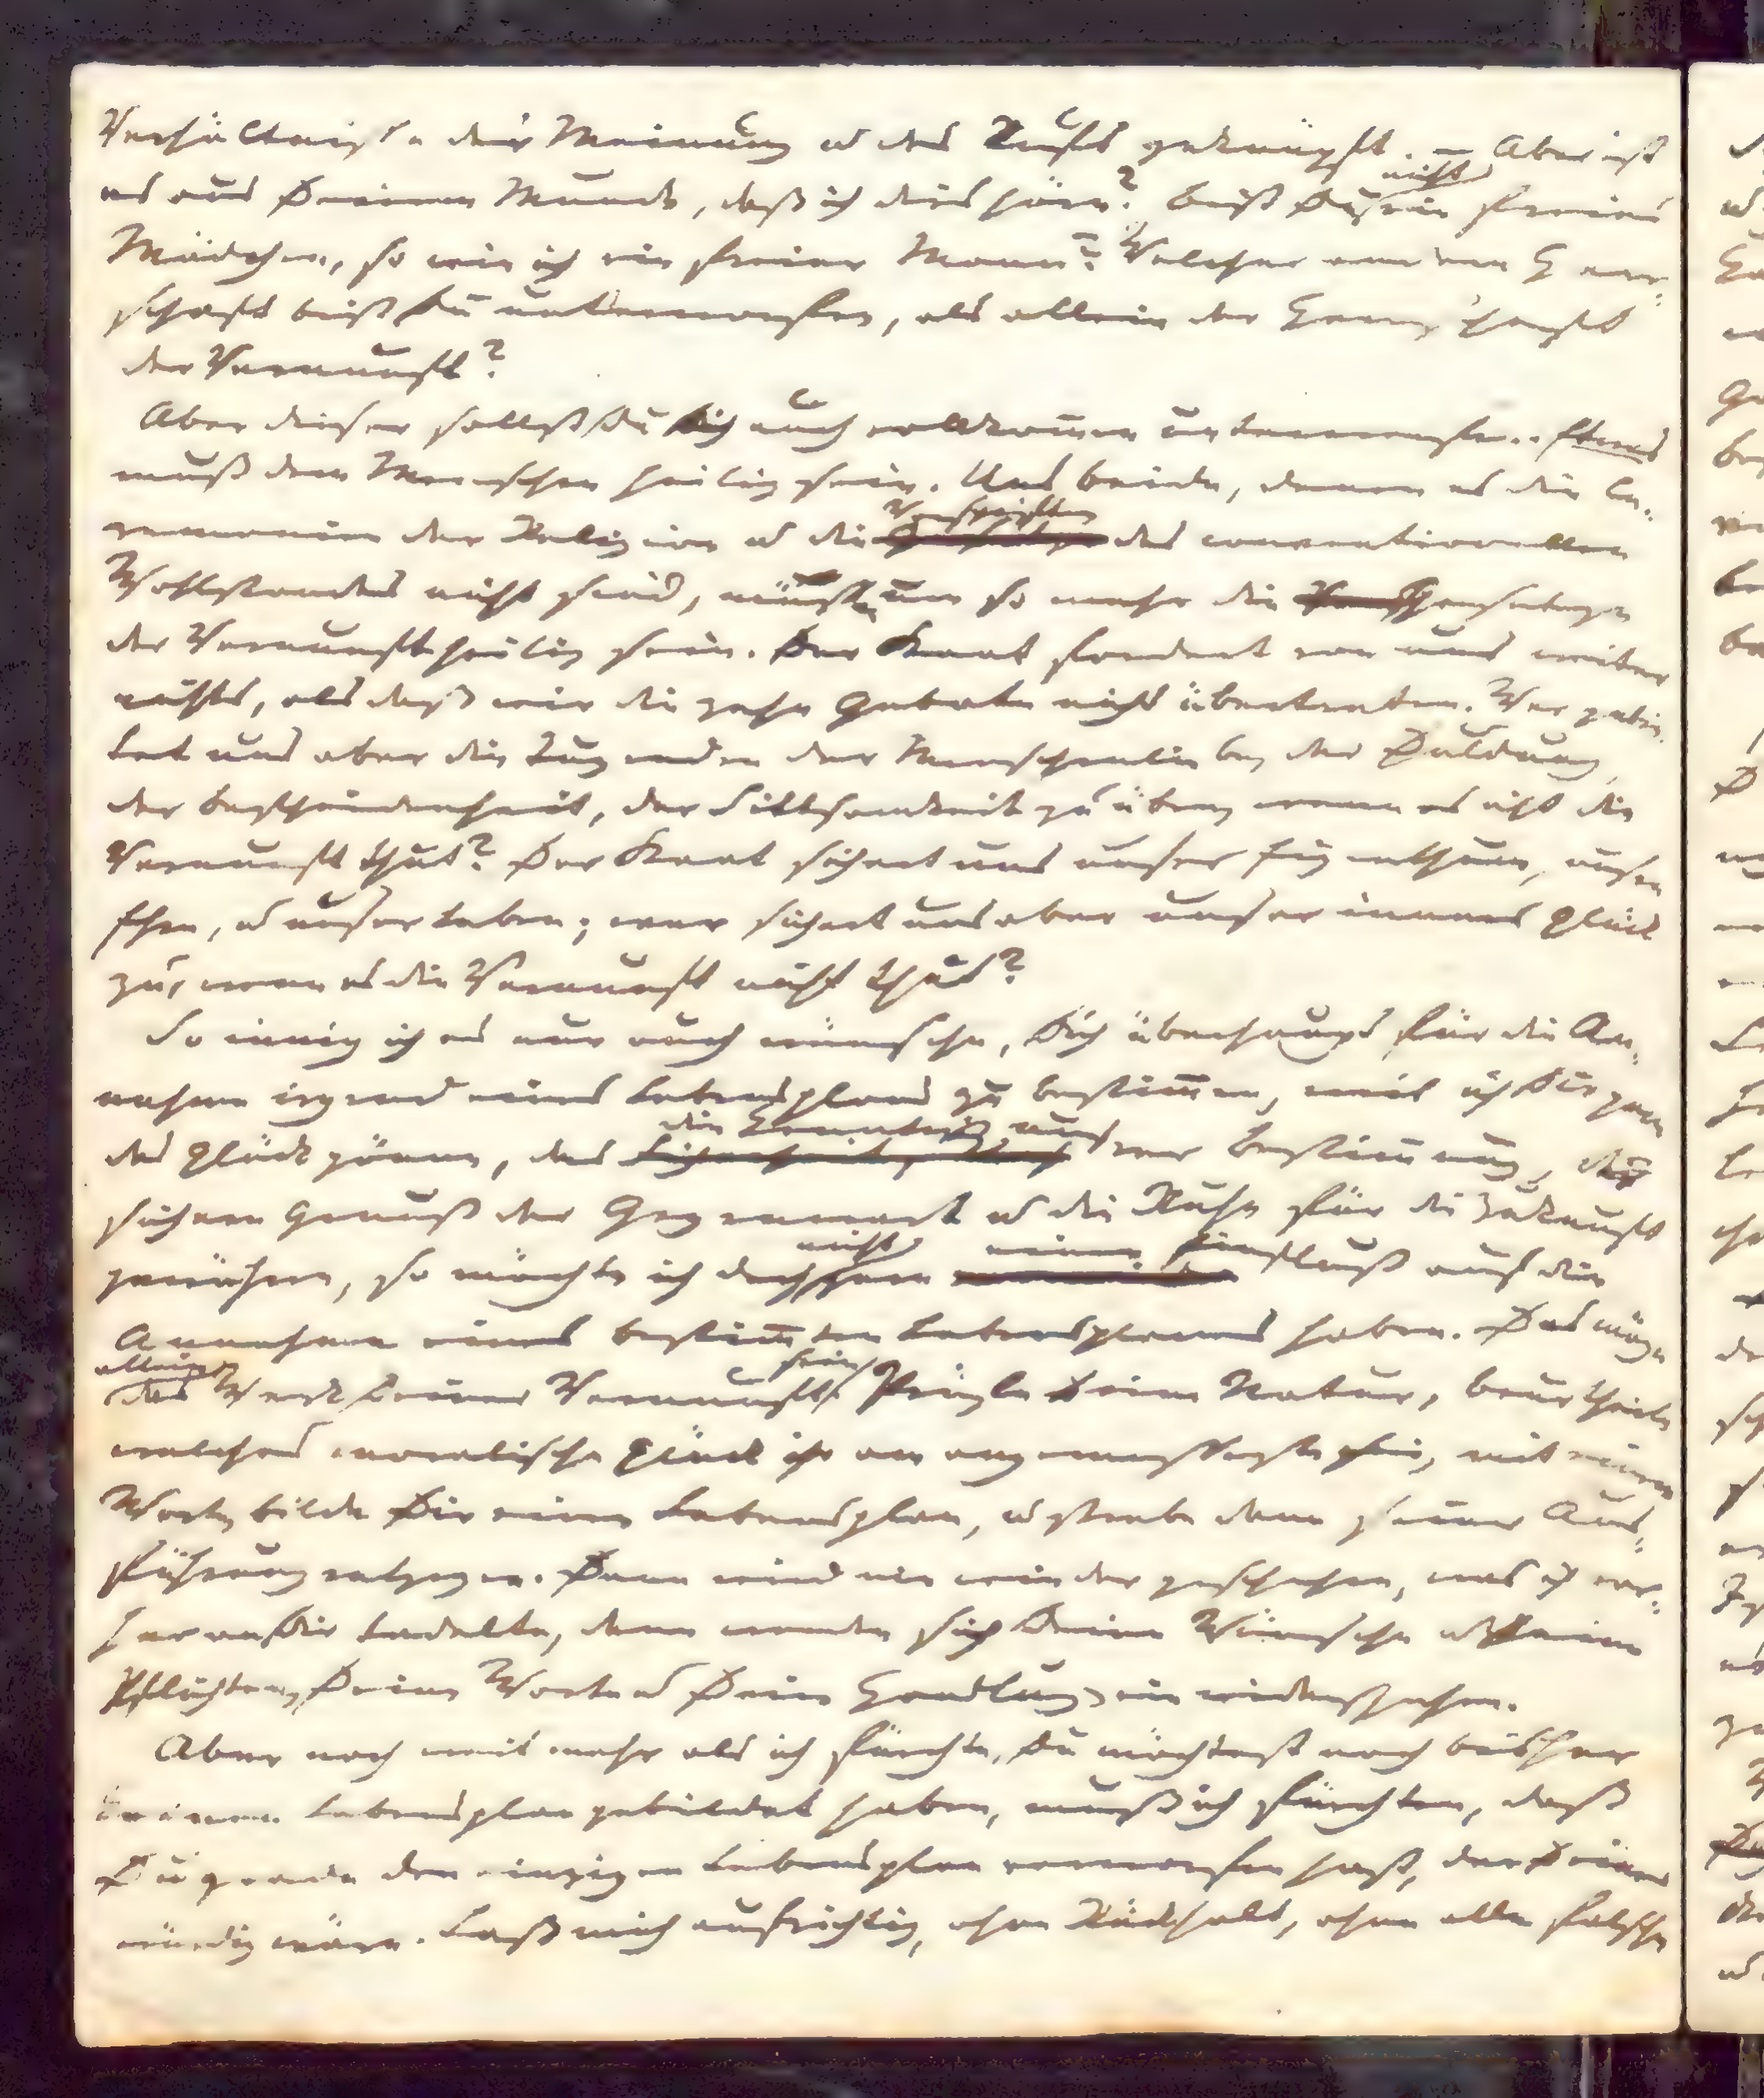 Verhältnisse der Meinung u des Rufs geknüpft. – Aber ist
es aus Deinem Munde, daß ich dies höre? Bist Du nicht ein freies
Mädchen, so wie ich ein freier Mann? Welcher andern Herr-
schaft bist Du unterworfen, als allein der Herrschaft
der Vernunft?
Aber dieser sollst Du Dich auch vollkommen unterwerfen. Etwas
muß dem Menschen heilig sein. Uns beide, denen es die Ce-
remonien der Religion u die Vorschriften des conventionellen
Wohlstandes nicht sind, müssen um so mehr die Gesetze
der Vernunft heilig sein. Der Staat fordert von uns weiter
nichts, als daß wir die zehn Gebote nicht übertreten. Wer gebie-
tet uns aber die Tugenden der Menschenliebe, der Duldung,
der Bescheidenheit, der Sittsamkeit zu üben, wenn es nicht die
Vernunft thut? Der Staat sichert uns unser Eigenthum, unsre
Ehre, u unser Leben; wer sichert uns aber unser inneres Glück
zu, wenn es die Vernunft nicht thut?
So innig ich es nun auch wünsche, Dich überhaupt für die An-
nahme irgend eines Lebensplans zu bestimmen, weil ich Dir gern
das Glück gönne, das die Kenntniß unsrer Bestimmung, der
sichere Genuß der Gegenwart u die Ruhe für die Zukunft
gewähren, so möchte ich doch nicht gern einen Einfluß auf die
Annahme eines bestimmten Lebensplanes haben. Das möge
allein das Werk Deiner Vernunft sein. Prüfe Deine Natur, beurtheile
welches moralische Glück ihr am angemessensten sei, mit einem
Worte, bilde Dir einen Lebensplan, u strebe dann seiner Aus-
führung entgegen. Dann wird nie wieder geschehen, was ich vor-
her an Dir tadelte, dann werden sich Deine Wünsche u Deine
Pflichten, Deine Worte u Deine Handlungen nie widersprechen.
Aber noch weit mehr als ich fürchte, Du möchtest noch bisher
keinen Lebensplan gebildet haben, muß ich fürchten, daß
Du grade den einzigen Lebensplan verworfen hast, der Deiner
würdig wäre. Laß mich aufrichtig, ohne Rückhalt, ohne alle falsche